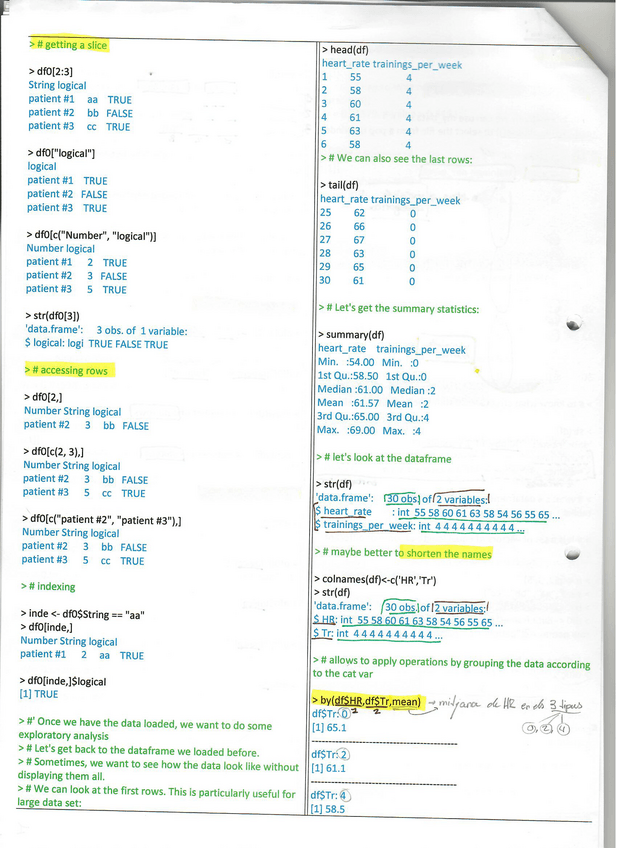 > # getting a slice
> df0[2:3]
String logical
patient #1 aa TRUE
patient #2 bb FALSE
patient #3 cc TRUE
> df0["logical"]
logical
patient #1 TRUE
patient #2 FALSE
patient #3 TRUE
> df0[c("Number", "logical")]
Number logical
patient #1 2 TRUE
patient #2 3 FALSE
patient #3 5 TRUE
> str(df0[3])
'data.frame': 3 obs. of 1 variable:
$ logical: logi TRUE FALSE TRUE
> # accessing rows
> df0[2,]
Number String logical
patient #2 3 bb FALSE
> df0[c(2, 3),]
Number String logical
patient #2 3 bb FALSE
patient #3 5 cc TRUE
> df0[c("patient #2", "patient #3"),]
Number String logical
patient #2 3 bb FALSE
patient #3 5 cc TRUE
> # indexing
> inde <- df0$String == "aa"
> df0[inde,]
Number String logical
patient #1 2 aa TRUE
> df0[inde,]$logical
[1] TRUE
> #' Once we have the data loaded, we want to do some
exploratory analysis
> # Let's get back to the dataframe we loaded before.
> # Sometimes, we want to see how the data look like without
displaying them all.
> # We can look at the first rows. This is particularly useful for
large data set:
> head(df)
heart_rate trainings_per_week
1 55 4
2 58 4
3 60 4
4 61 4
5 63 4
6 58 4
> # We can also see the last rows:
> tail(df)
heart_rate trainings_per_week
25 62 0
26 66 0
27 67 0
28 63 0
29 65 0
30 61 0
> # Let's get the summary statistics:
> summary(df)
heart_rate trainings_per_week
Min. :54.00 Min. :0
1st Qu.:58.50 1st Qu.:0
Median :61.00 Median :2
Mean :61.57 Mean :2
3rd Qu.:65.00 3rd Qu.:4
Max. :69.00 Max. :4
> # let's look at the dataframe
> str(df)
'data.frame': 30 obs. of 2 variables:
$ heart_rate : int 55 58 60 61 63 58 54 56 55 65 ...
$ trainings_per_week: int 4 4 4 4 4 4 4 4 4 4 ...
> # maybe better to shorten the names
> colnames(df)<-c('HR','Tr')
> str(df)
'data.frame': 30 obs. of 2 variables:
$ HR: int 55 58 60 61 63 58 54 56 55 65 ...
$ Tr: int 4 4 4 4 4 4 4 4 4 4 ...
> # allows to apply operations by grouping the data according
to the cat var
> by(df$HR,df$Tr,mean) → mitjana de HR en els 3 tipus
df$Tr: 0
0, 2, 4
[1] 65.1
df$Tr: 2
[1] 61.1
df$Tr: 4
[1] 58.5